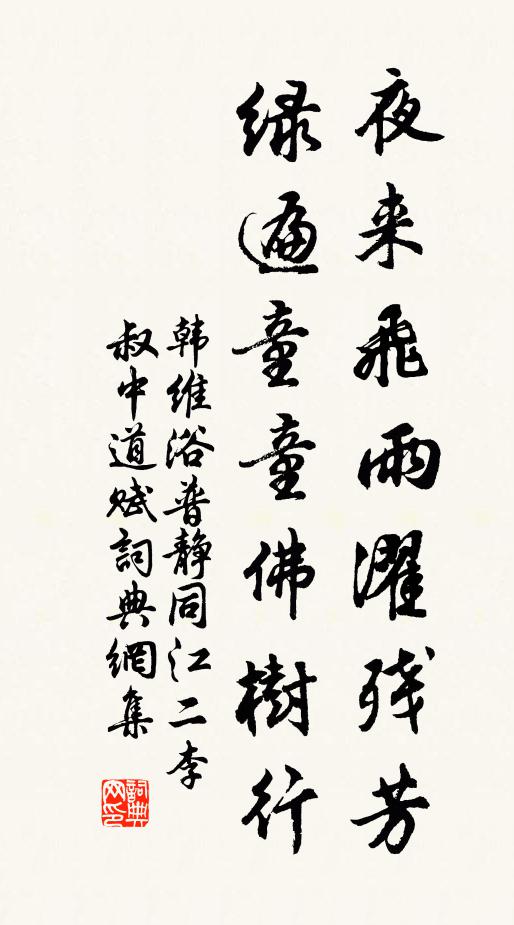 夜来飛雨濯残芳
緑遍童童佛樹行
韩維浴普静同江二李
叔中道赋詞典網集
詞典网印